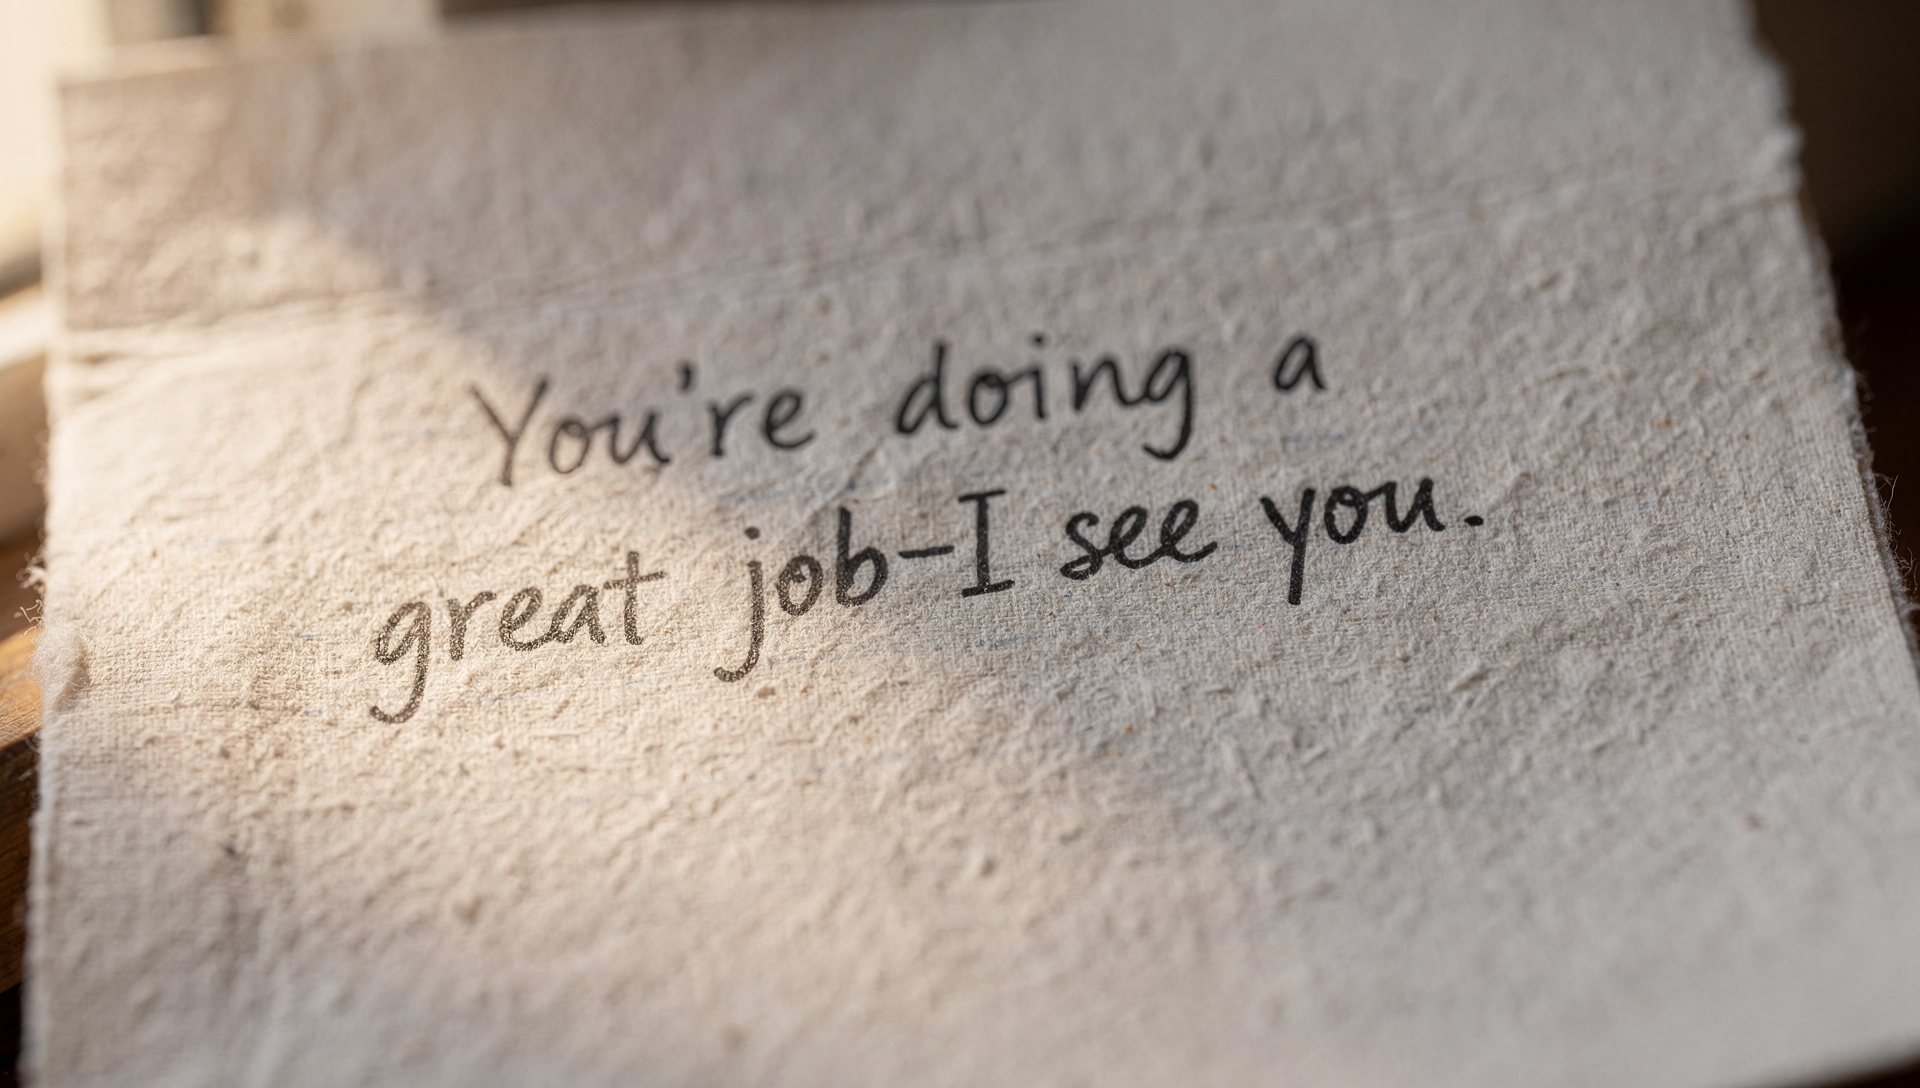 You're doing a
great job–I see you.